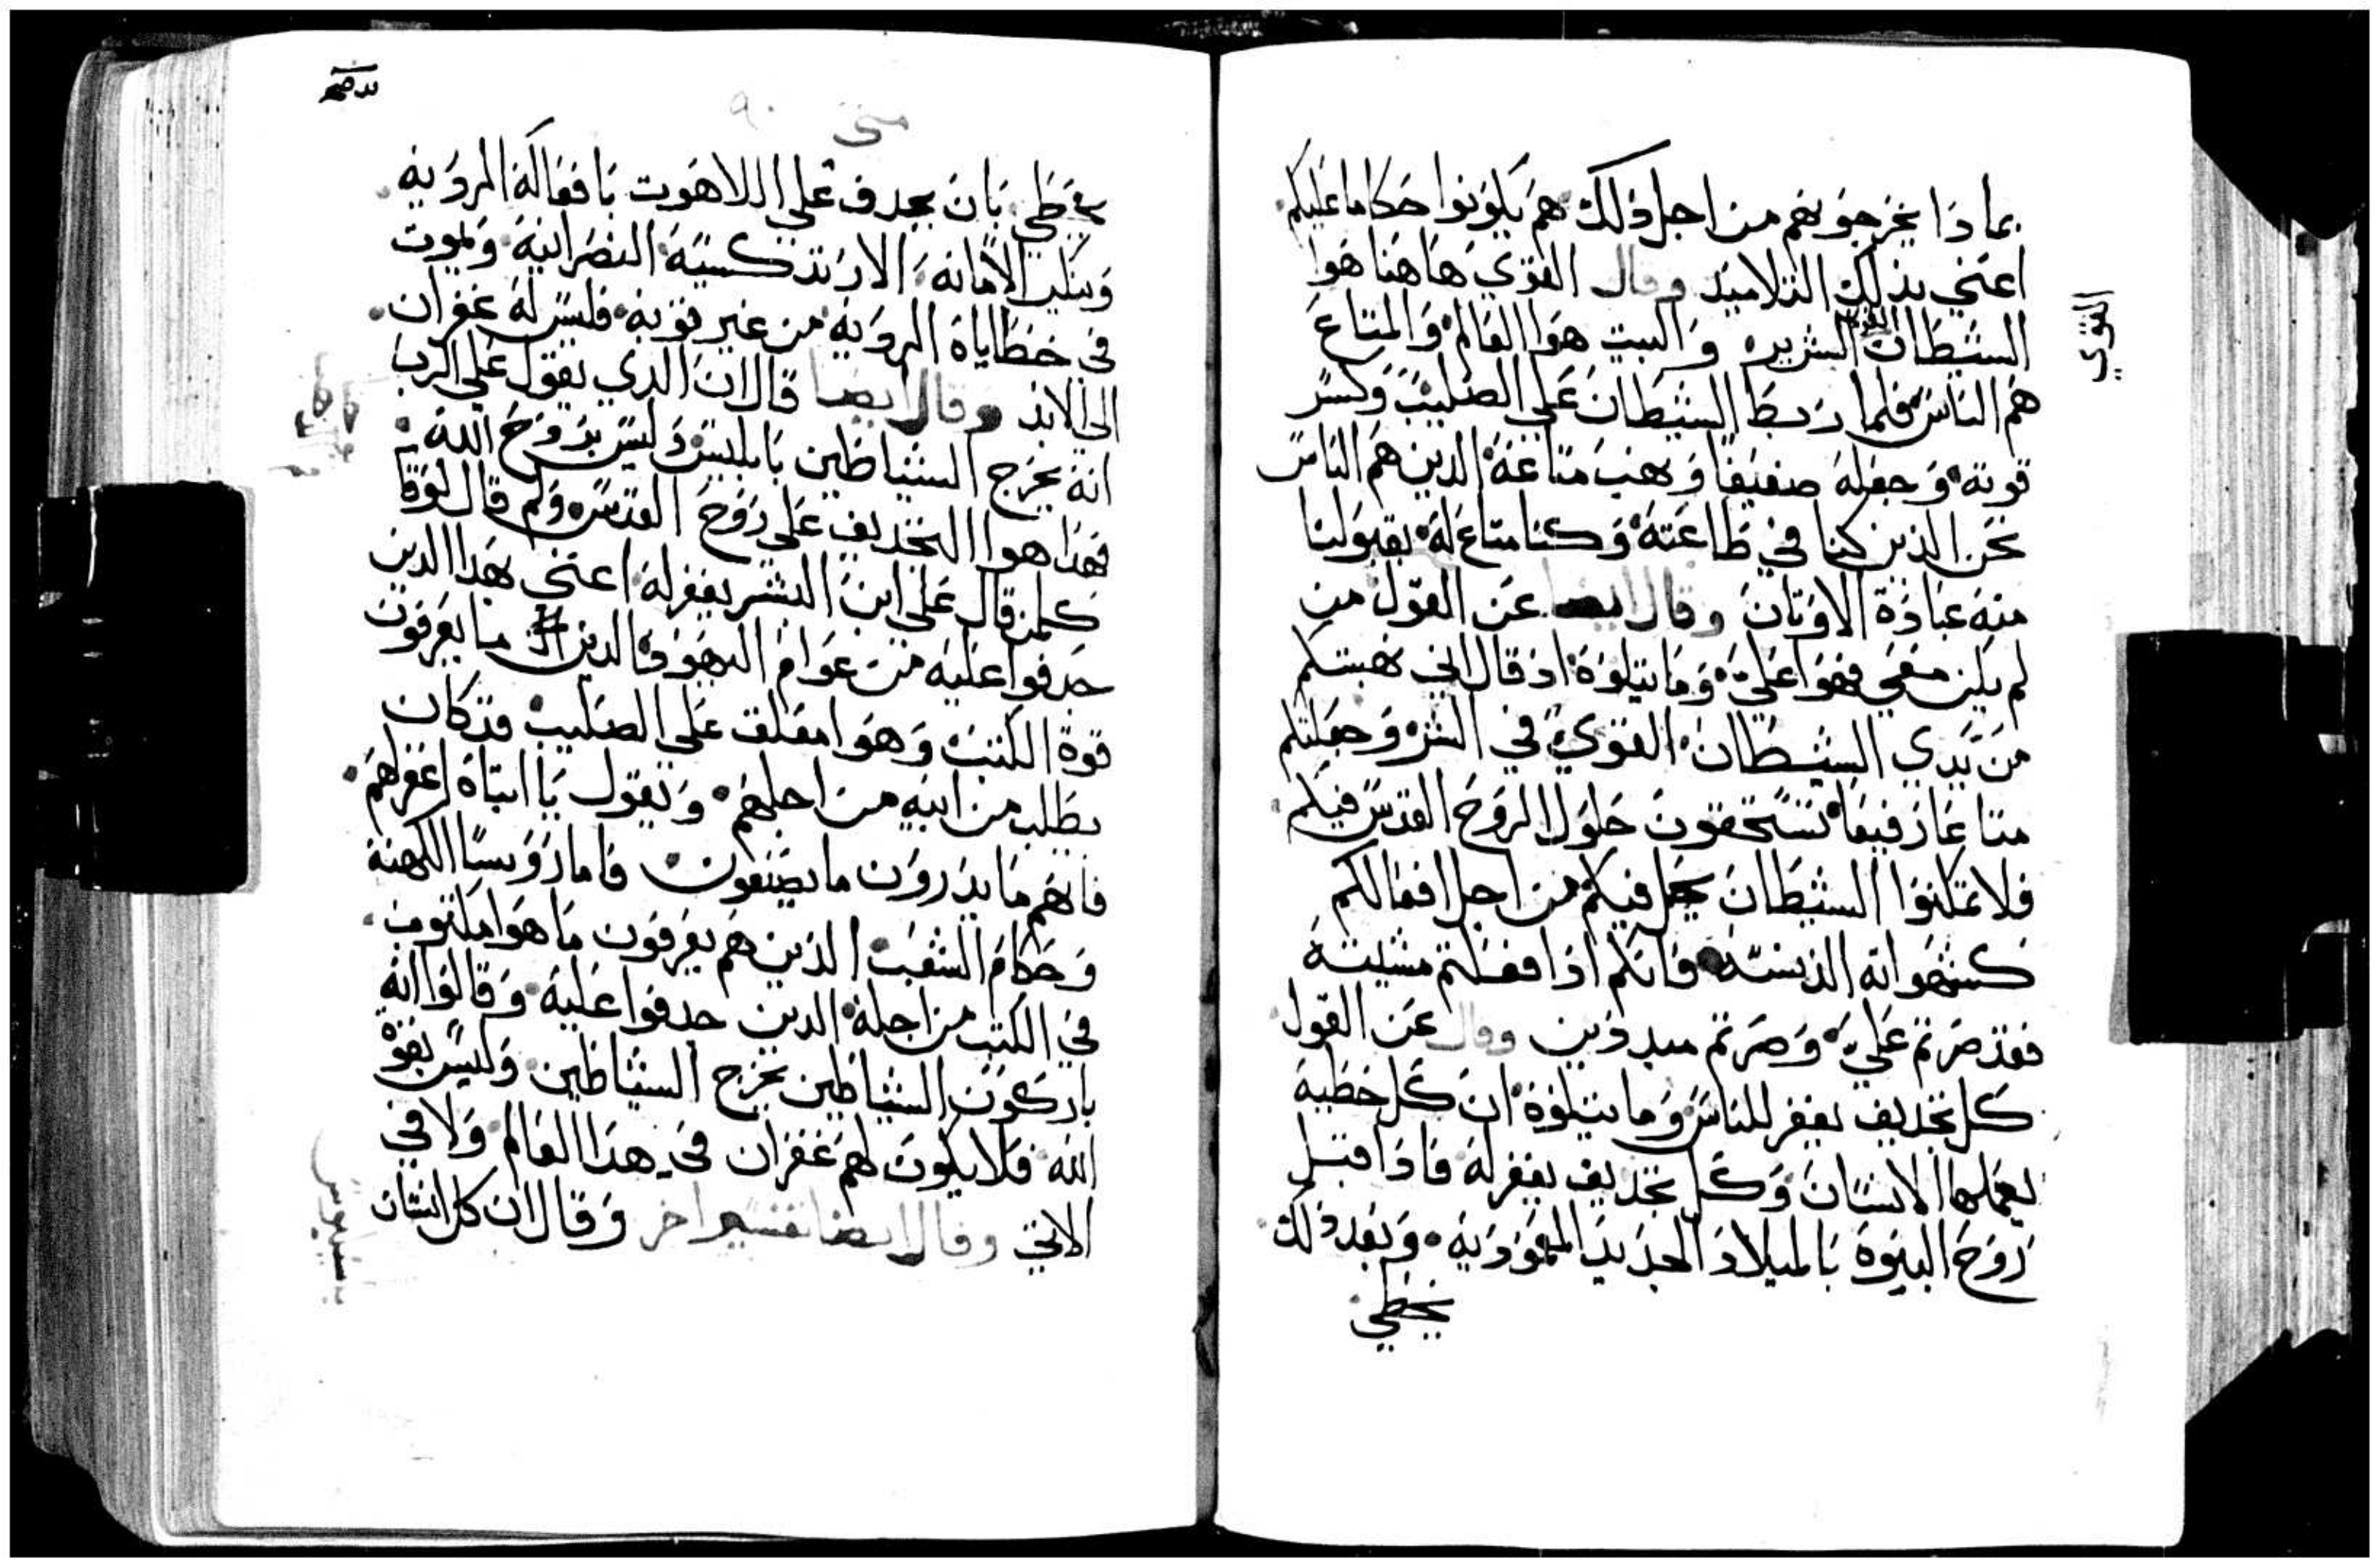 بماذا يخرجونهم من اجل ذلك هم يكونوا حكاما عليكم
اعني بذلك التلاميذ وقال القوي هاهنا هوا
السيطان الشريره والبيت هوا العالم والمتاع
هم الناس فلما ربط الشيطان علي الصليب وكسر
قوته وجعله ضعيفا ونهب متاعه الدين هم الناس
نحن الذين كنا في طاعته وكنا متاع له بقبولنا
منه عبادة الاوتان وقال ايضا عن القول من
لم يكن معي فهوا علي وما يتلوه اد قال اني نهبتكم
من يدي الشيطان القوي في الشر وجعلتكم
متاعا رفيعا تستحقون حلول الروح القدس فيكم
فلا تمكنوا الشيطان يحل فيكم من اجل افعالكم
كشهواته الدنسه فانكم ادا فعلتم مشيته
فقد صرتم علي وصرتم مبددين وقال عن القول
كل تجديف يغفر للناس وما يتلوه ان كل خطية
يعملها الانسان وكل تجديف يغفر له فادا قبل
روح البنوة بالميلاد الجديد المعموديه وبعد دلك
يخطي
القوي
متي ٩٠
يخطي بان يجدف علي اللاهوت بافعاله الرديه
وينكر الامانه الارتدكسية النصرانية ويموت
في خطاياه الرديه من غير توبه فليس له غفران
الي الابد وقال ايضا قال ان الدي يقول علي الرب
انه يخرج الشياطين بابليس وليس بروح الله
فهدا هوا التجديف علي روح القدس ولم قال لوقا
كلمن قال علي ابن البشر يغفر له اعني بهدا الدين
جدفوا عليه من عوام اليهود الدين ما يعرفون
قوة الكتب وهوا معلق علي الصليب قد كان
يطلب من ابيه من اجلهم ويقول يا ابتاه اغفر لهم
فانهم ما يدرون ما يصنعون فاما روسا الكهنة
وحكام الشعب الدين هم يعرفون ما هوا مكتوب
في الكتب من اجله الدين جدفوا عليه وقالوا انه
باركون الشياطين يخرج الشياطين وليس بقوة
الله فلا يكون لهم غفران في هدا العالم ولا في
الاتي وقال ايضا تفسير اخر وقال ان كل انسان